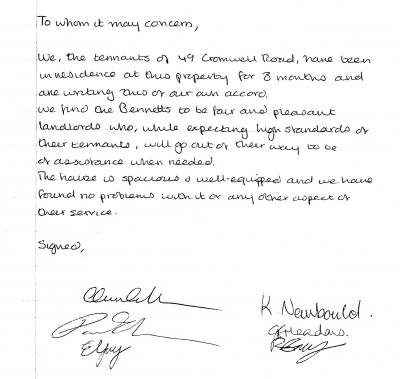 To whom it may concern,
We, the tennants of 49 Cromwell Road, have been
in residence at this property for 8 months and
are writing this of our own accord.
We find the Bennetts to be fair and pleasant
landlords who, while expecting high standards of
their tennants, will go out of their way to be
of assistance when needed.
The house is spacious & well-equipped and we have
found no problems with it or any other aspect of
their service.
Signed,
K Newbould.